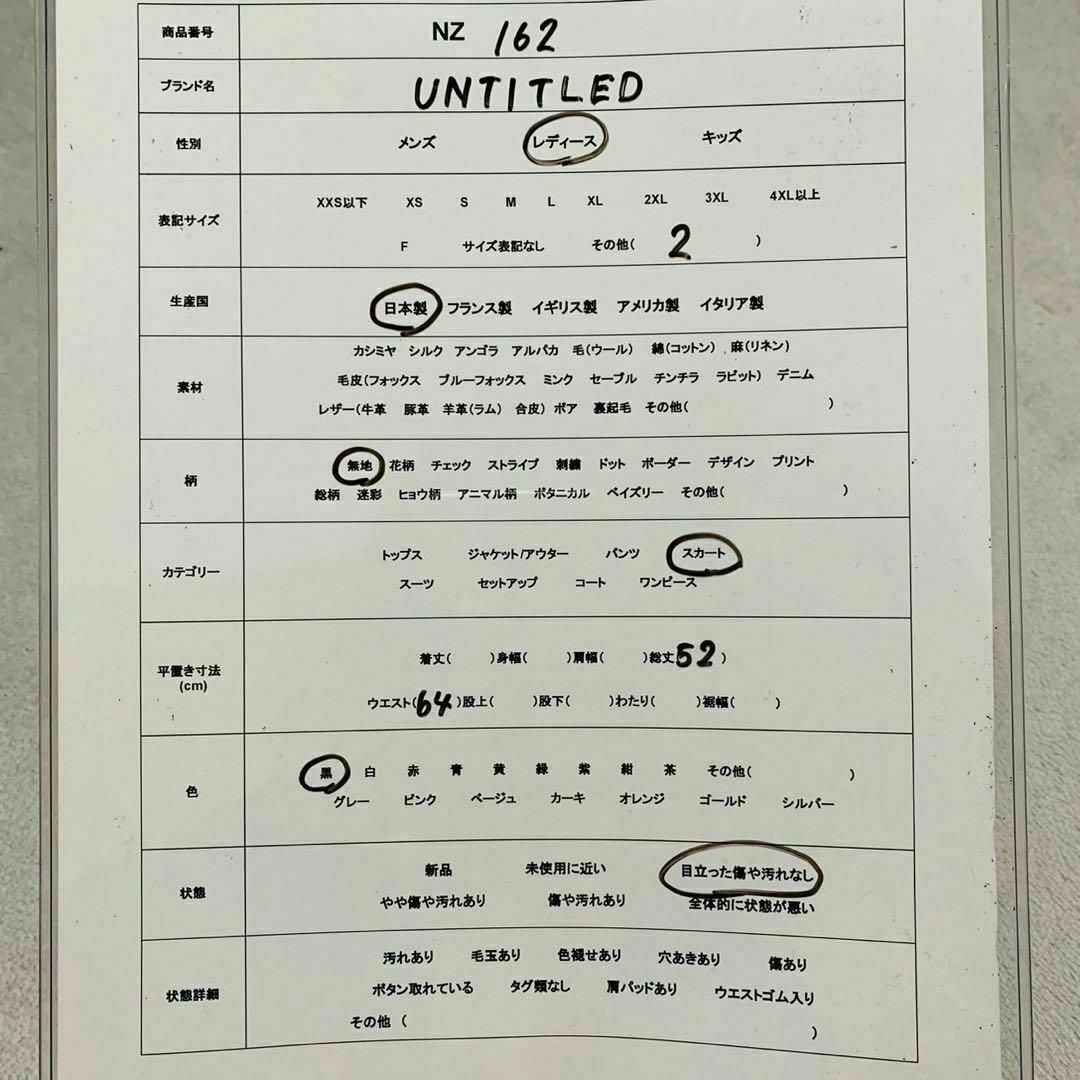 商品番号 NZ 162
ブランド名 UNTITLED
性別 メンズ レディース キッズ
XXS以下 XS S M L XL 2XL 3XL 4XL以上
表記サイズ
F サイズ表記なし その他( 2 )
生産国 日本製 フランス製 イギリス製 アメリカ製 イタリア製
カシミヤ シルク アンゴラ アルパカ 毛(ウール) 綿(コットン) 麻(リネン)
素材 毛皮(フォックス ブルーフォックス ミンク セーブル チンチラ ラビット) デニム
レザー(牛革 豚革 羊革(ラム) 合皮) ボア 裏起毛 その他( )
柄 無地 花柄 チェック ストライプ 刺繍 ドット ボーダー デザイン プリント
総柄 迷彩 ヒョウ柄 アニマル柄 ボタニカル ペイズリー その他( )
トップス ジャケット/アウター パンツ スカート
カテゴリー
スーツ セットアップ コート ワンピース
着丈( )身幅( )肩幅( )総丈52 )
平置き寸法
(cm)
ウエスト(64 )股上( )股下( )わたり( )裾幅( )
黒 白 赤 青 黄 緑 紫 紺 茶 その他( )
色
グレー ピンク ベージュ カーキ オレンジ ゴールド シルバー
新品 未使用に近い 目立った傷や汚れなし
状態
やや傷や汚れあり 傷や汚れあり 全体的に状態が悪い
汚れあり 毛玉あり 色褪せあり 穴あきあり 傷あり
状態詳細 ボタン取れている タグ類なし 肩パッドあり ウエストゴム入り
その他 ( )